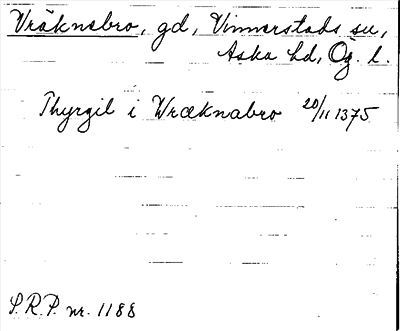 Vräknabro, gd, Vinnerstads sn,
Aska hd, Ög. l.
Thyrgil i Wræknabro 20/11 1375
S.R.P. nr. 1188